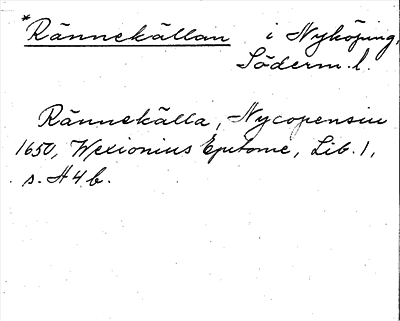 *Rännekällan i Nyköping,
Söderm. l.
Rännekälla, Nycopensiu
1650, Wexionius Epitome, Lib. 1,
s. H 4 b.